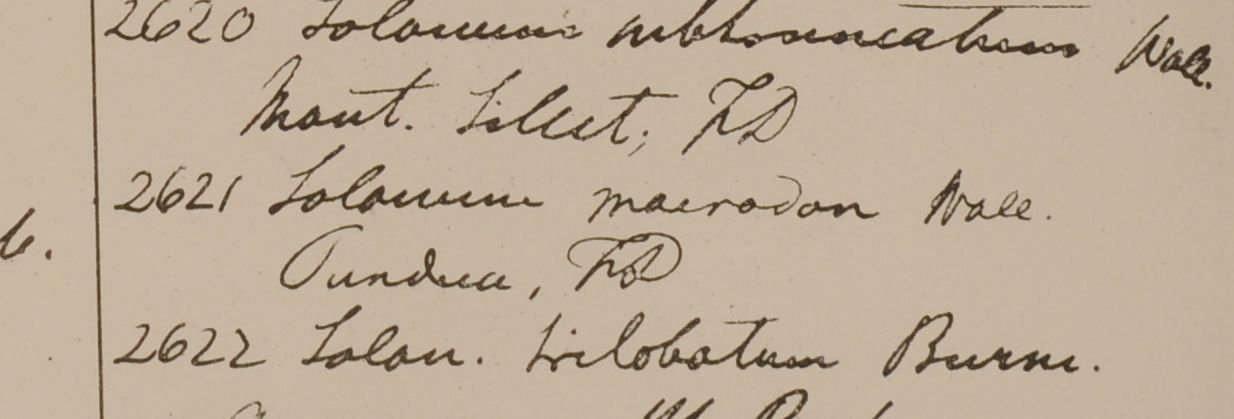 2620 Solanum subtruncatum Wall.
Mont. Sillet; FD
2621 Solanum macrodon Wall.
Pundua, FD
6.
2622 Solan. trilobatum Burm.